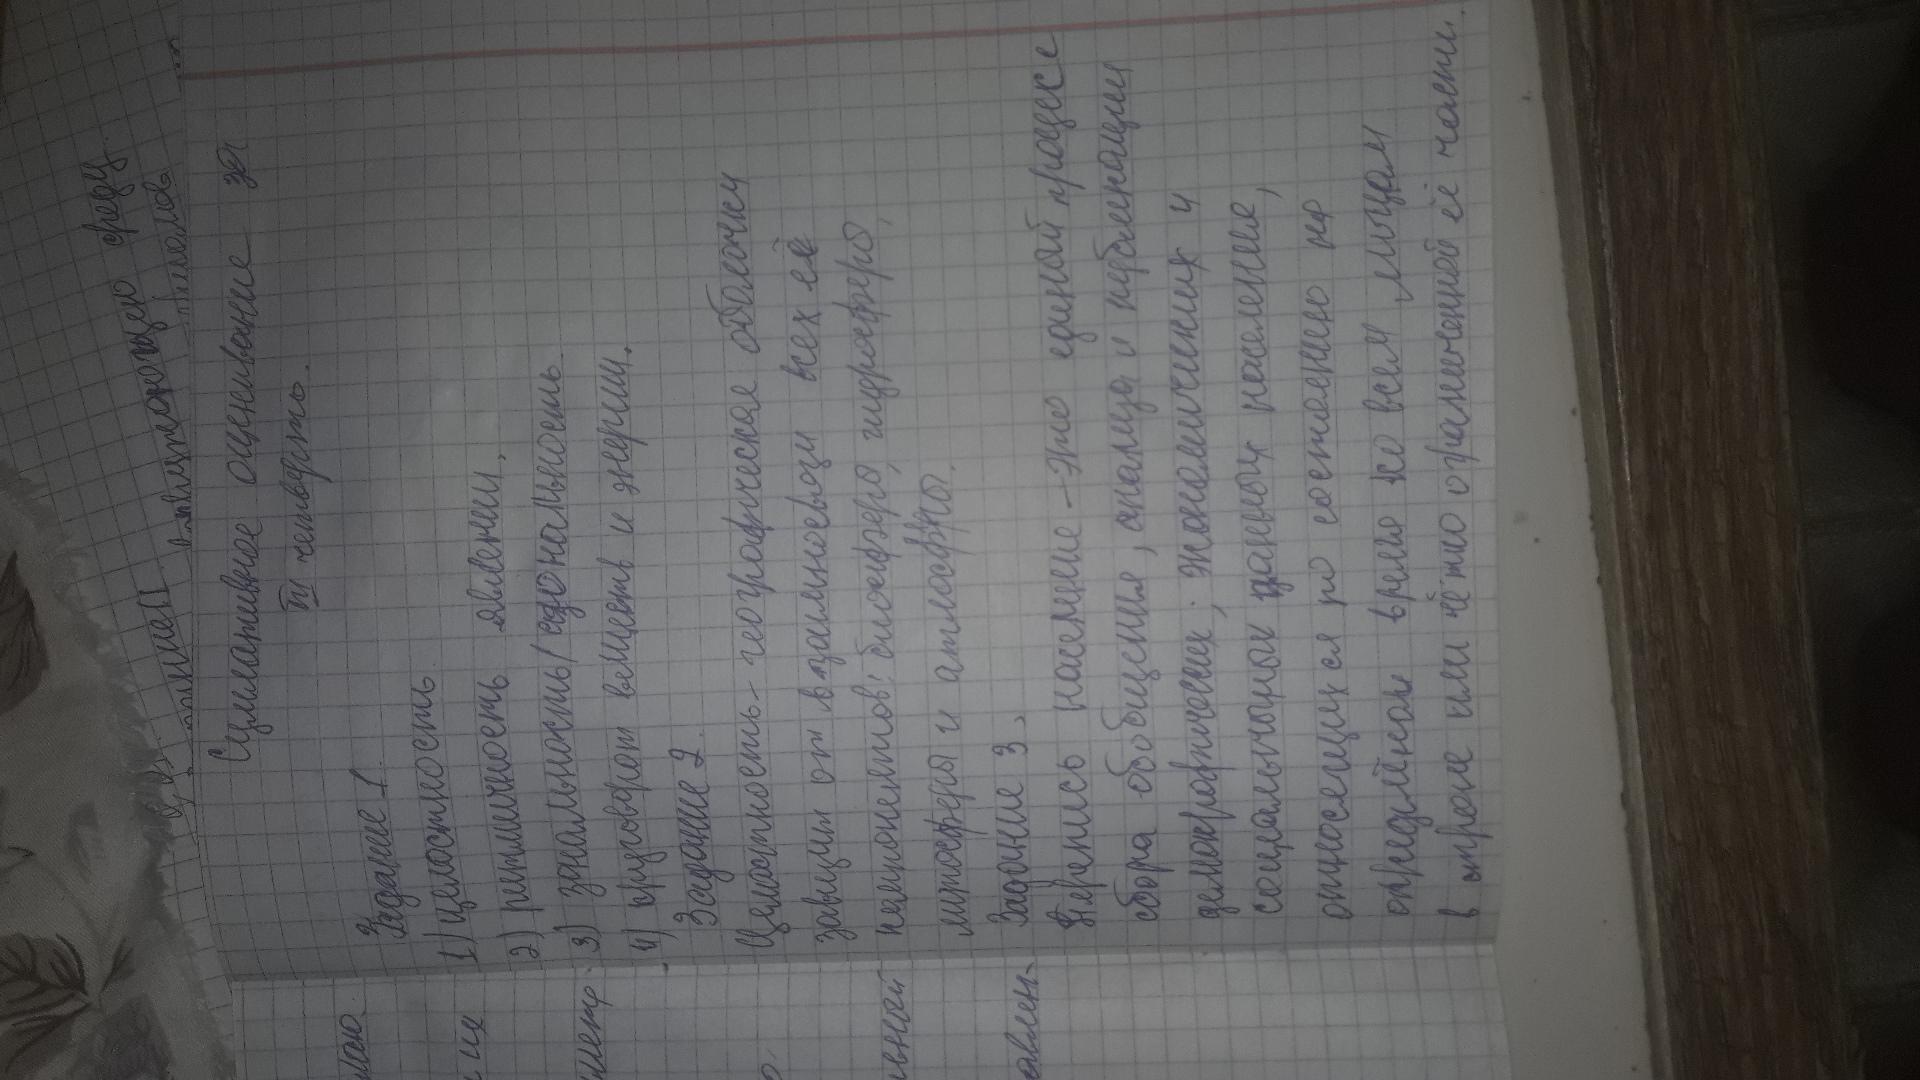 Суммативное оценивание за
III четверть.
Задание 1.
1) целостность
2) ритмичность явлении.
3) зональность/азональность
4) круговорот веществ и энергии.
Задание 2.
Целостность - географическая оболочки
зависит от взаимносвязи всех её
компонентов: биосфера, гидросфера,
литосферы и атмосферы.
Задание 3.
Перепись насемние - это единой процесс
сбора обобщения, анализа и публикации
демографических, экономических и
социальнынок данных население,
относящихся по состоянию на
определённое время ко всем лицам
в стране или чётко ограниченной её части.
вной